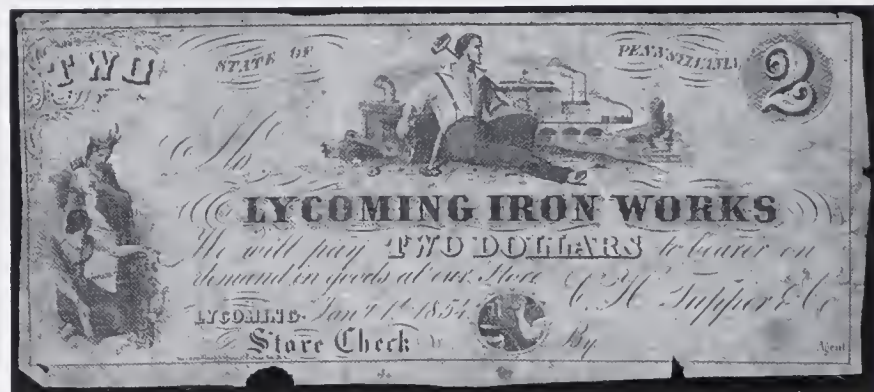 TWO STATE OF PENNSYLVANIA 2
No
LYCOMING IRON WORKS
We will pay TWO DOLLARS to bearer on
demand in goods at our Store
LYCOMING Jany 1st 1854 C. H. Tupper & Co
Store Check By Agent